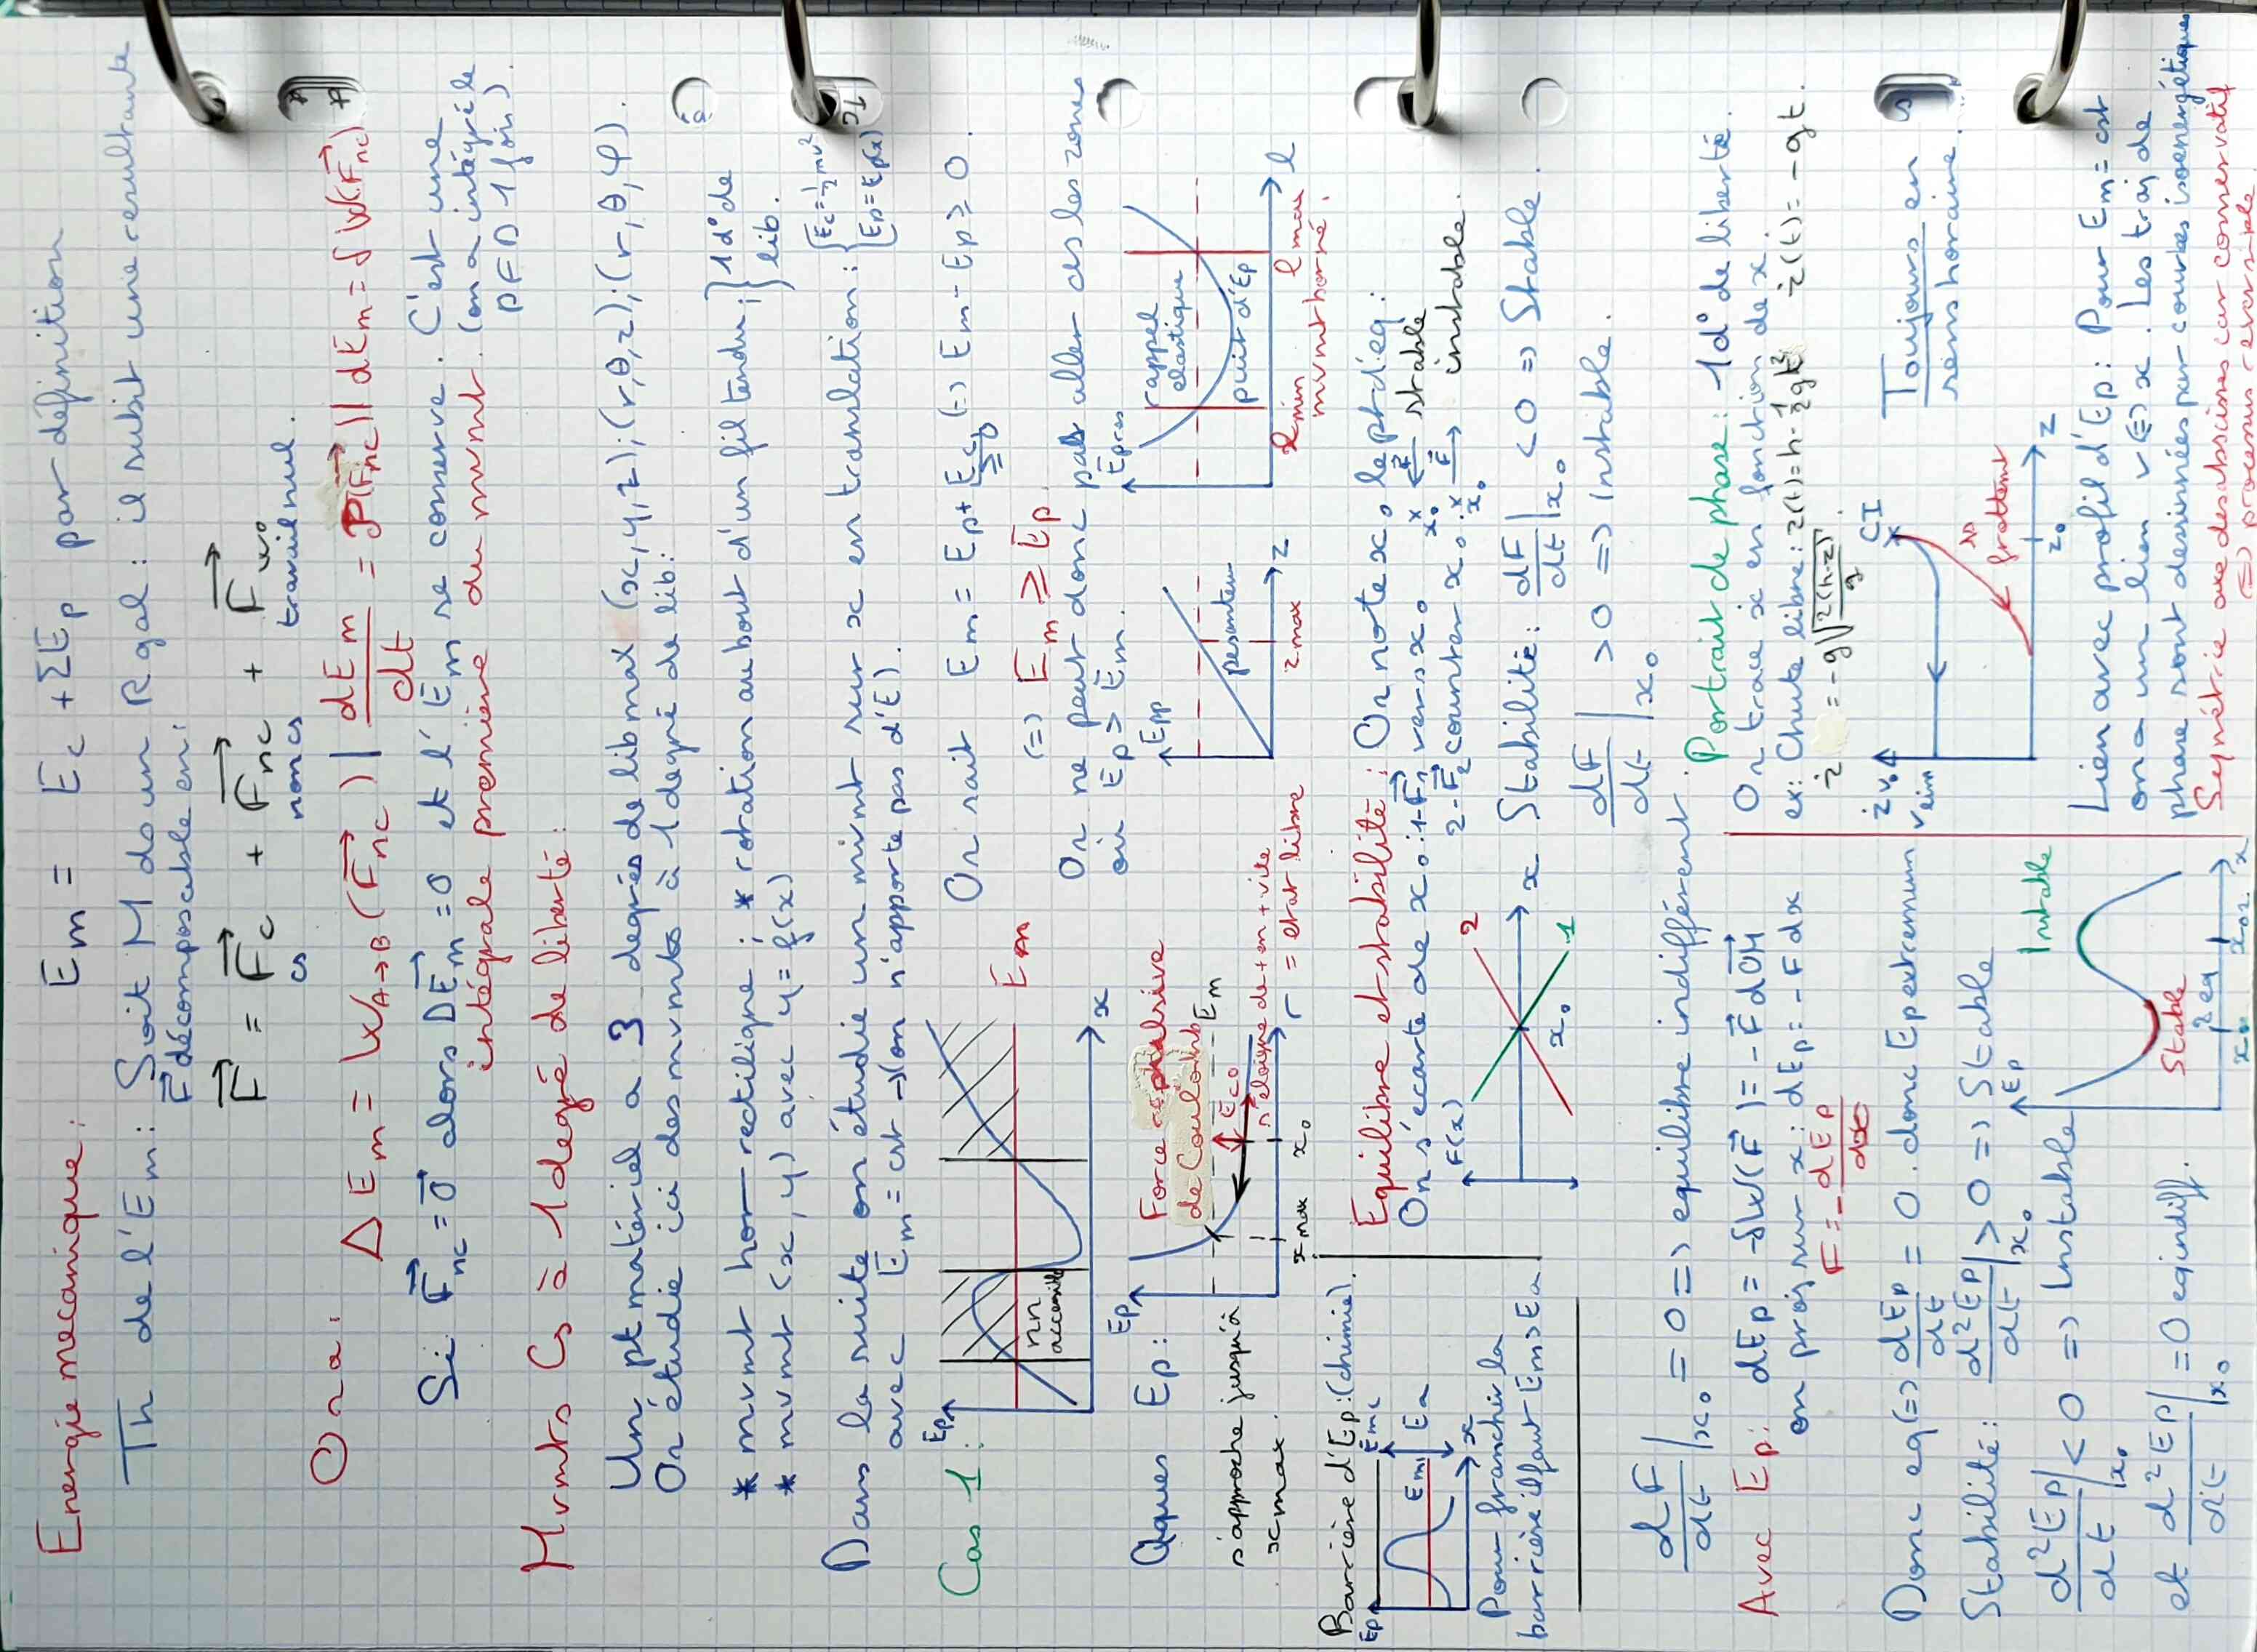 Energie mecanique: Em = Ec + ΣEp par définition
Th de l'Em: Soit M ds un R gal: il subit une resultante
F⃗ décomposable en:
F⃗ = F⃗c + F⃗nc + F⃗wo
cs non cs travail nul.
On a: ΔEm = W A→B (F⃗nc) | dEm/dt = P(F⃗nc) || dEm = δW(F⃗nc)
Si F⃗nc = 0⃗ alors ΔEm = 0 et l'Em se conserve. C'est une
intégrale première du mvmt. (on a intégré le
PFD 1 fois).
Mvmts Cs à 1 degré de liberté:
Un pt matériel a 3 degrés de lib max (x,y,z);(r,θ,z);(r,θ,φ).
On étudie ici des mvmts à 1 degré de lib:
* mvmt hor rectiligne; * rotation au bout d'un fil tendu; } 1 d° de
* mvmt (x,y) avec y = f(x) lib.
Dans la suite on étudie un mvmt sur x en translation: {Ec = 1/2 mv²
avec Em = cst → (on n'apporte pas d'E). {Ep = Ep(x)
Cas 1: Ep
nn
accessible
Em
x
On sait Em = Ep + Ec ⇔ Em - Ep ≥ 0.
≥0
⇔ Em ≥ Ep
On ne peut donc pas aller ds les zones
où Ep > Em.
Qques Ep:
Ep
Force repulsive
de Coulomb
Em
Ec0
s'éloigne de + en + vite
r = etat libre
x max x0
s'approche jusqu'à
xmax.
Epp
pesanteur
z max
z
Ep res
rappel
elastique
puit d'Ep
l min l max
mvmt borné.
l
Barrière d'Ep: (chimie).
Ep
Em
Ea
x
Pour franchir la
barrière il faut Em > Ea.
Equilibre et stabilité: On note x0 le pt d'eq:
On s'écarte de x0: 1- F⃗1 vers x0 stable
2- F⃗2 counter x0: instable.
F(x)
2
x
x0
1
Stabilité: dF/dt |x0 < 0 ⇒ Stable.
dF/dt |x0 > 0 ⇒ Instable.
dF/dt |x0 = 0 ⇒ equilibre indifférent.
Avec Ep: dEp = -δW(F⃗) = -F⃗ dOM⃗
en proj sur x: dEp = -F dx
F = - dEp/dx
Donc eq ⇔ dEp/dt = 0. donc Ep extremum
Stabilité: d²Ep/dt |x0 > 0 ⇒ Stable
d²Ep/dt |x0 < 0 ⇒ Instable
et d²Ep/dt |x0 = 0 eq indiff.
Ep
Stable
Instable
2 eq
x01 x02
x
Portrait de phase: 1 d° de liberté.
On trace ẋ en fonction de x
ex: Chute libre: z(t) = h - 1/2 gt² ż(t) = -gt.
ż = -g√(2(h-z)/g)
ż
v0
v lim
CI
frottement
z0
z
Toujours en
sens horaire.
Lien avec profil d'Ep: Pour Em = cst
on a un lien v ⇔ x. Les traj de
phase sont dessinées par courbes isoenergétiques
Symétrie axe des abscisses car conservatif
⇔ processus reversible.